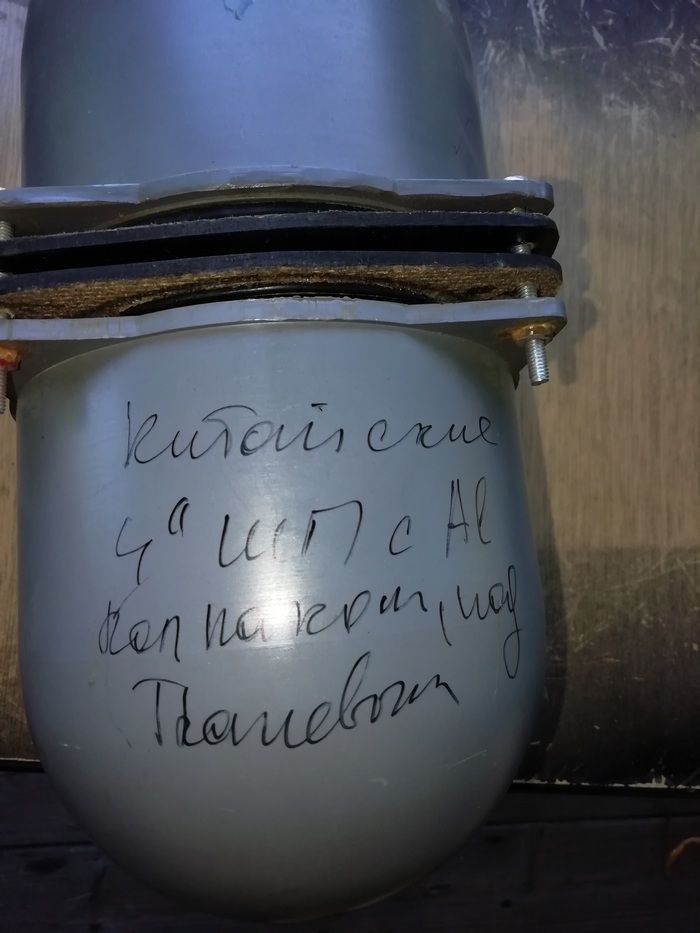 Китайские
4" ШП с Al
колпаком, под
Тканевым